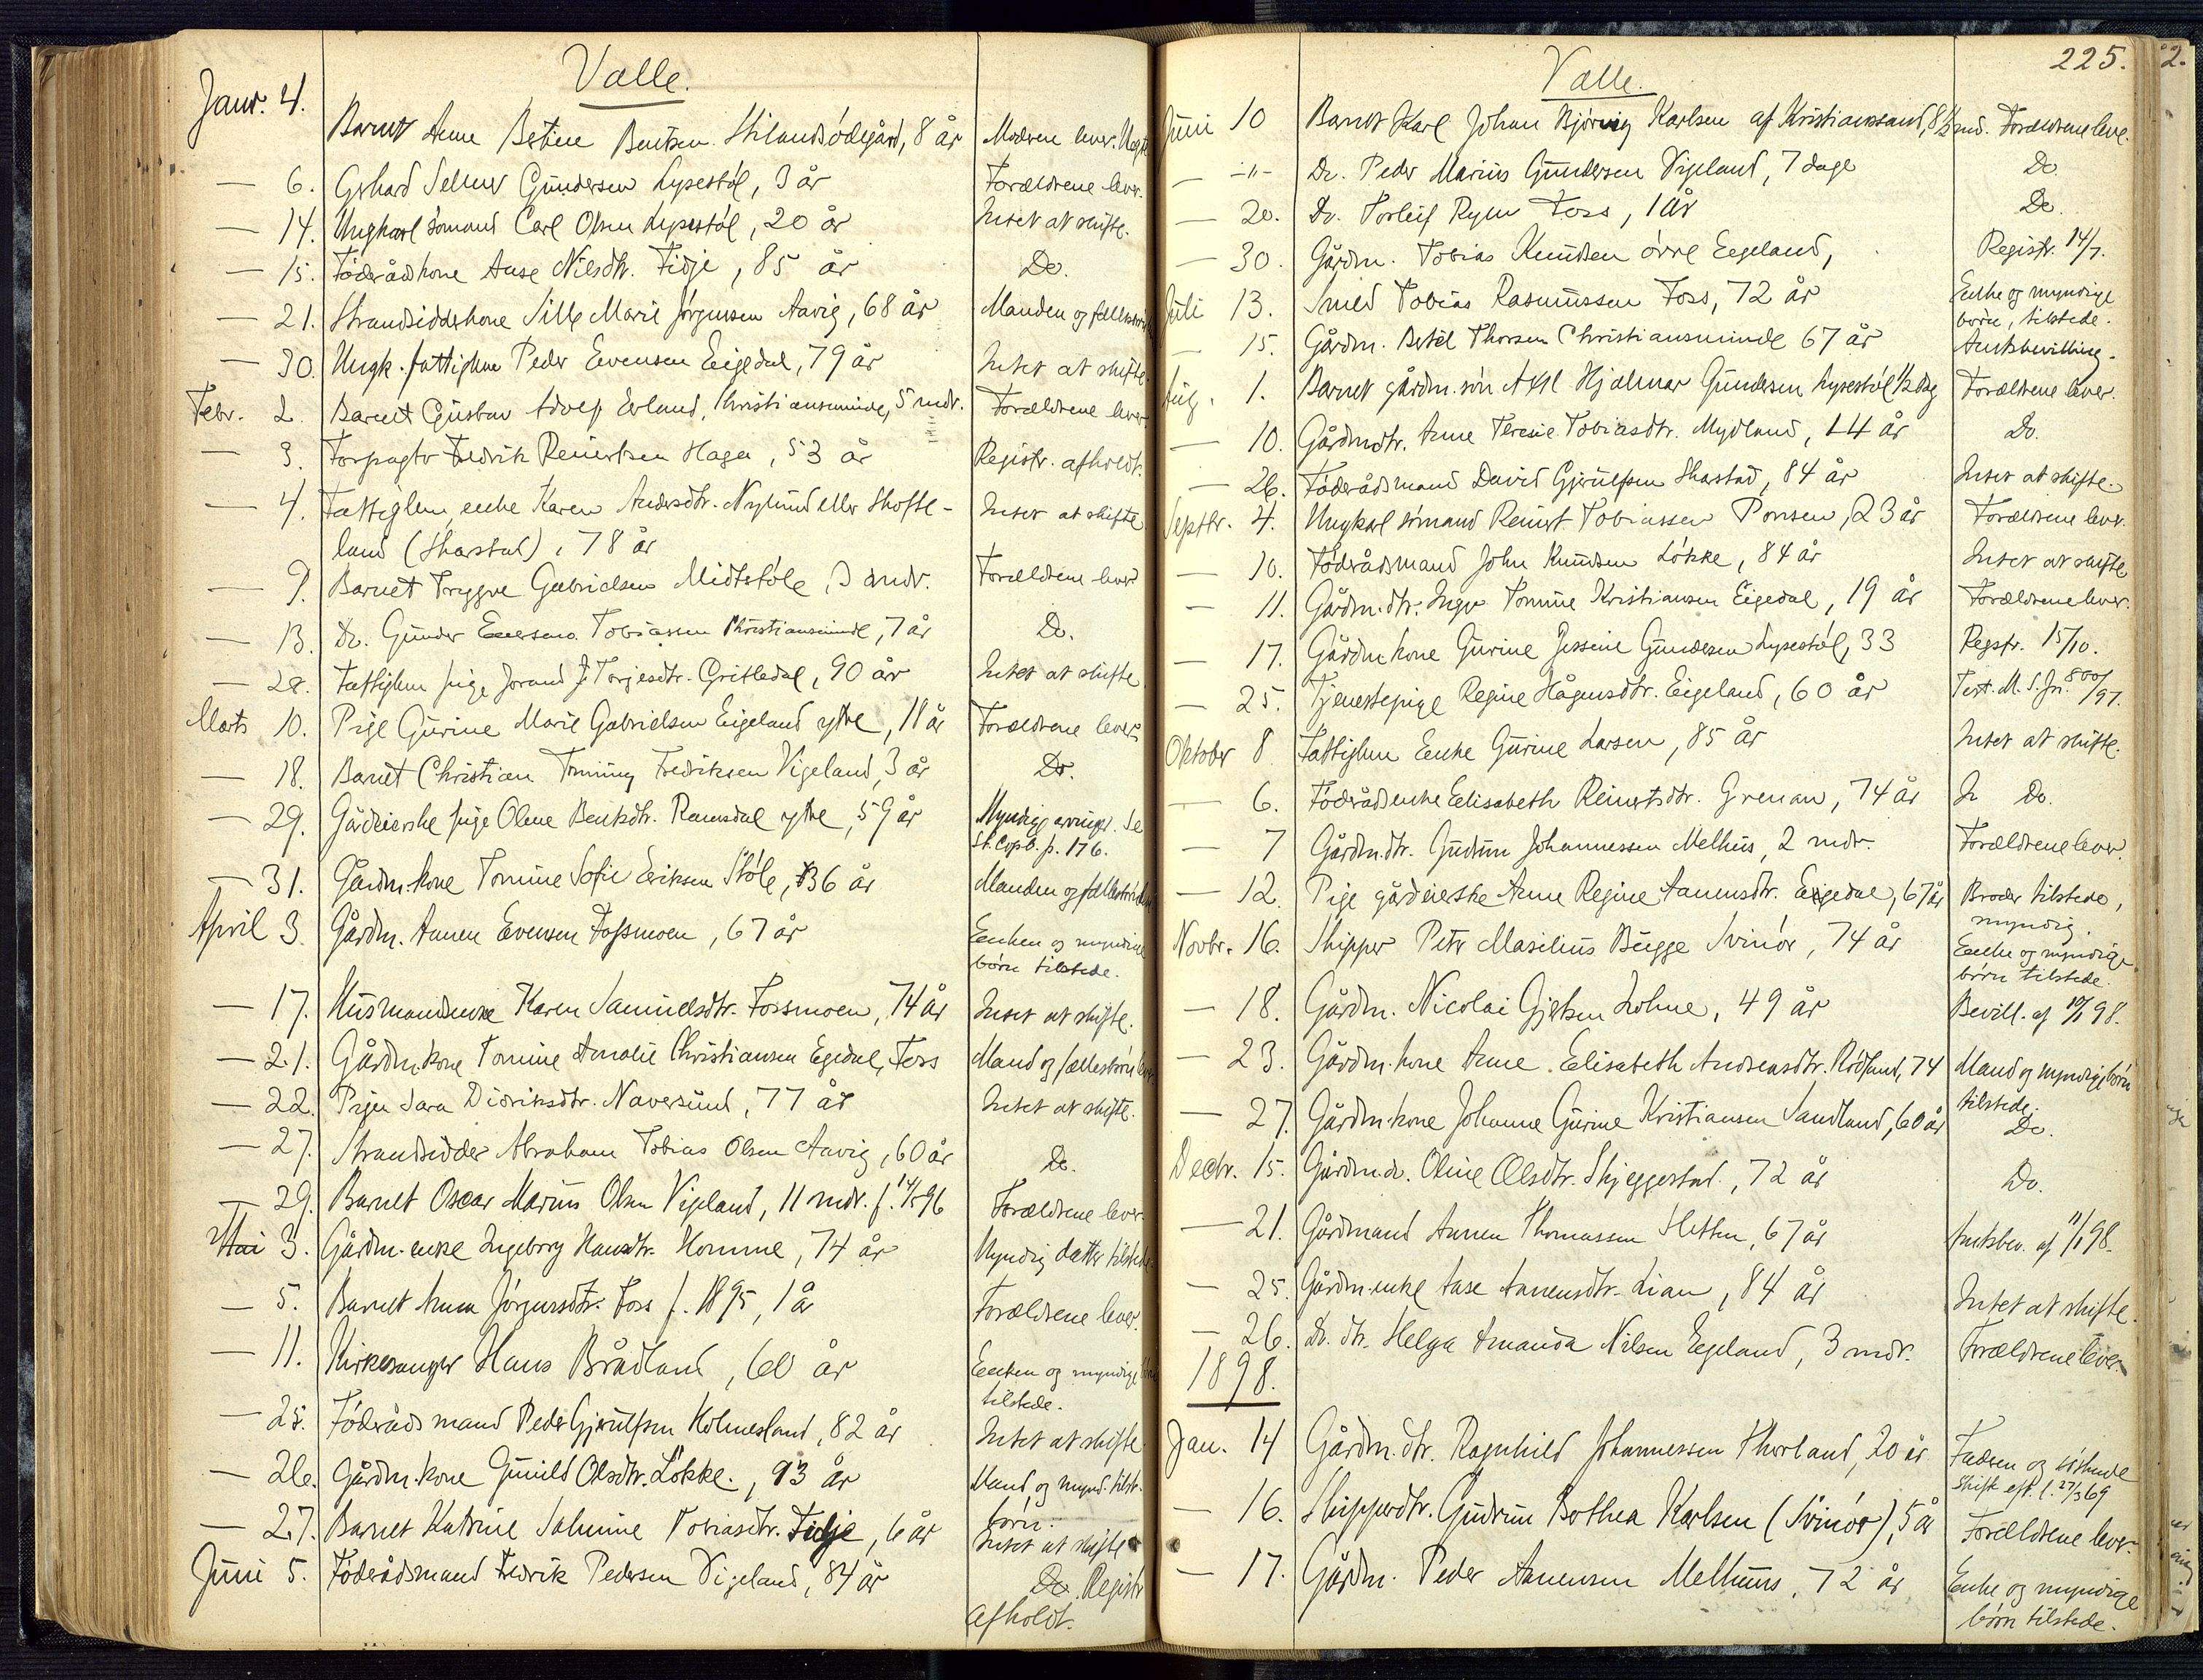 Valle.
Janr. 4. Barnet Anne Betine Bentsen Stilandsødegård, 8 år Moderen lever.
— 6. Gerhard Selmer Gundersen Lysestøl, 3 år Forældrene lever.
— 14. Ungkarl sømand Carl Olsen Lysestøl, 20 år Intet at skifte.
— 15. Føderådskone Aase Nilsdtr. Fidje, 85 år Do.
— 21. Strandsidderkone Sille Marie Jørgensen Aavig, 68 år Manden og fællesbørn
— 30. Ungk. fattiglem Peder Evensen Eigedal, 79 år Intet at skifte.
Febr. 2. Barnet Gustav Adolf Erland, Christiansminde, 5 mdr. Forældrene lever
— 3. Forpagter Fredrik Reinertsen Haga, 53 år Registr. afholdt.
— 4. Fattiglem enke Karen Andersdtr. Nylund eller Skofte- Intet at skifte
land (Skarstad), 78 år
— 9. Barnet Tryggve Gabrielsen Midtstøle, 3 mdr. Forældrene lever
— 13. Do. Gunder Tobiassen Christiansminde, 7 år Do.
— 28. Fattiglem pige Jorand Torjesdtr. Gritledal, 90 år Intet at skifte
Marts 10. Pige Gurine Marie Gabrielsen Eigeland ytre, 11 år Forældrene lever.
— 18. Barnet Christian Fredriksen Vigeland, 3 år Do.
— 29. Gårdeierske pige Oline Bentsdtr. Ramsdal ytre, 59 år Myndige arvinger. Se
Sk. Copb. p. 176.
— 31. Gårdm.kone Tomine Sofie Eriksen Støle, 36 år Manden og fællesbørn
April 3. Gårdm. Aanen Evensen Fossmoen, 67 år Enken og myndige
børn tilstede.
— 17. Husmandsenke Karen Samuelsdtr. Fossmoen, 74 år Intet at skifte.
— 21. Gårdm.kone Tomine Amalie Christiansen Egedal, Foss Mand og fællesbørn lever.
— 22. Pigen Sara Didriksdtr. Naversund, 77 år Intet at skifte.
— 27. Strandsidder Abraham Tobias Olsen Aavig, 60 år Do.
— 29. Barnet Oscar Marius Olsen Vigeland, 11 mdr. f. 14/5 96 Forældrene lever.
Mai 3. Gårdm. enke Ingeborg Hansdtr. Homme, 74 år Myndig datter tilstede
— 5. Barnet Anna Jørgensdtr. Foss f. 1895, 1 år Forældrene lever.
— 11. Kirkesanger Hans Brådland, 60 år Enken og myndige børn
tilstede.
— 25. Føderådsmand Peder Gjerulfsen Holmesland, 82 år Intet at skifte
— 26. Gårdm.kone Gunild Olsdtr. Løkke, 93 år Mand og mynd. tilst.
børn.
— 27. Barnet Katrine Salmine Tobiasdtr. Fidje, 6 år Intet at skifte
Juni 5. Føderådsmand Fredrik Pedersen Vigeland, 84 år Do. Registr
afholdt.
225.
Valle.
Juni 10 Barnet Karl Johan Bjørvig Karlsen af Kristianssand, 8½ md. Forældrene leve.
— -"- Do. Peder Marius Gundersen Vigeland, 7 dage Do.
— 20. Do. Torleif Ryen Foss, 1 år Do.
— 30. Gårdm. Tobias Knudsen øvre Eegeland, Registr. 14/7.
Juli 13. Smed Tobias Rasmussen Foss, 72 år Enke og myndige
børn, tilstede.
— 15. Gårdm. Bertel Thorsen Christiansminde 67 år Amtsbevilling.
Aug. 1. Barnet gårdm.søn Axel Hjalmar Gundersen Lysestøl ½ dag Forældrene lever.
— 10. Gårdmdtr. Anne Teresie Tobiasdtr. Mydland, 14 år Do.
— 26. Føderådsmand David Gjerulfsen Skarstad, 84 år Intet at skifte.
Septbr. 4. Ungkarl sømand Reinert Tobiassen Ponsen, 23 år Forældrene lever.
— 10. Føderådsmand John Knudsen Løkke, 84 år Intet at skifte
— 11. Gårdm.dtr. Inger Tomine Kristiansen Eigedal, 19 år Forældrene lever.
— 17. Gårdm kone Gurine Jessine Gundersen Lysestøl, 33 Regstr. 15/10.
— 25. Tjenestepige Regine Hågensdtr. Eigeland, 60 år Test. M. S. Jn. 800/97.
Oktober 8 Fattiglem Enke Gurine Larsen, 85 år Intet at skifte.
— 6. Føderådsenke Elisabeth Reinertsdtr. Grenan, 74 år Do.
— 7 Gårdm.dtr. Gudrun Johannessen Melhus, 2 mdr. Forældrene lever.
— 12. Pige gårdeierske Anne Regine Aanensdtr. Eigedal, 67 år Broder tilstede,
myndig.
Novbr. 16. Skipper Peter Masilius Bugge Svinør, 74 år Enke og myndige
børn tilstede.
— 18. Gårdm. Nicolai Gjertsen Lohne, 49 år Bevill. af 10/1 98.
— 23. Gårdm. kone Anne Elisabeth Andreasdtr. Rødland, 74 Mand og myndige børn
tilstede.
— 27. Gårdm.kone Johanne Gurine Kristiansen Sandland, 60 år Do.
Decbr. 15. Gårdm.do. Oline Olsdtr. Skjeggestad, 72 år Do.
— 21. Gårdmand Aanen Thomassen Sletten, 67 år Amtsbev. af 11/1 98.
— 25. Gårdm.enke Aase Aanensdtr. Lian, 84 år Intet at skifte.
— 26. Do. dtr. Helga Amanda Nilsen Egeland, 3 mdr. Forældrene lever.
1898.
Jan. 14 Gårdm. dtr. Ragnhild Johannessen Thorland, 20 år Faderen og søskende
Skift eft. l. 27/3 69
— 16. Skipperdtr. Gudrun Bothea Karlsen (Svinør), 5 år Forældrene lever.
— 17. Gårdm. Peder Aanensen Melhuus, 72 år Enke og myndige
børn tilstede.